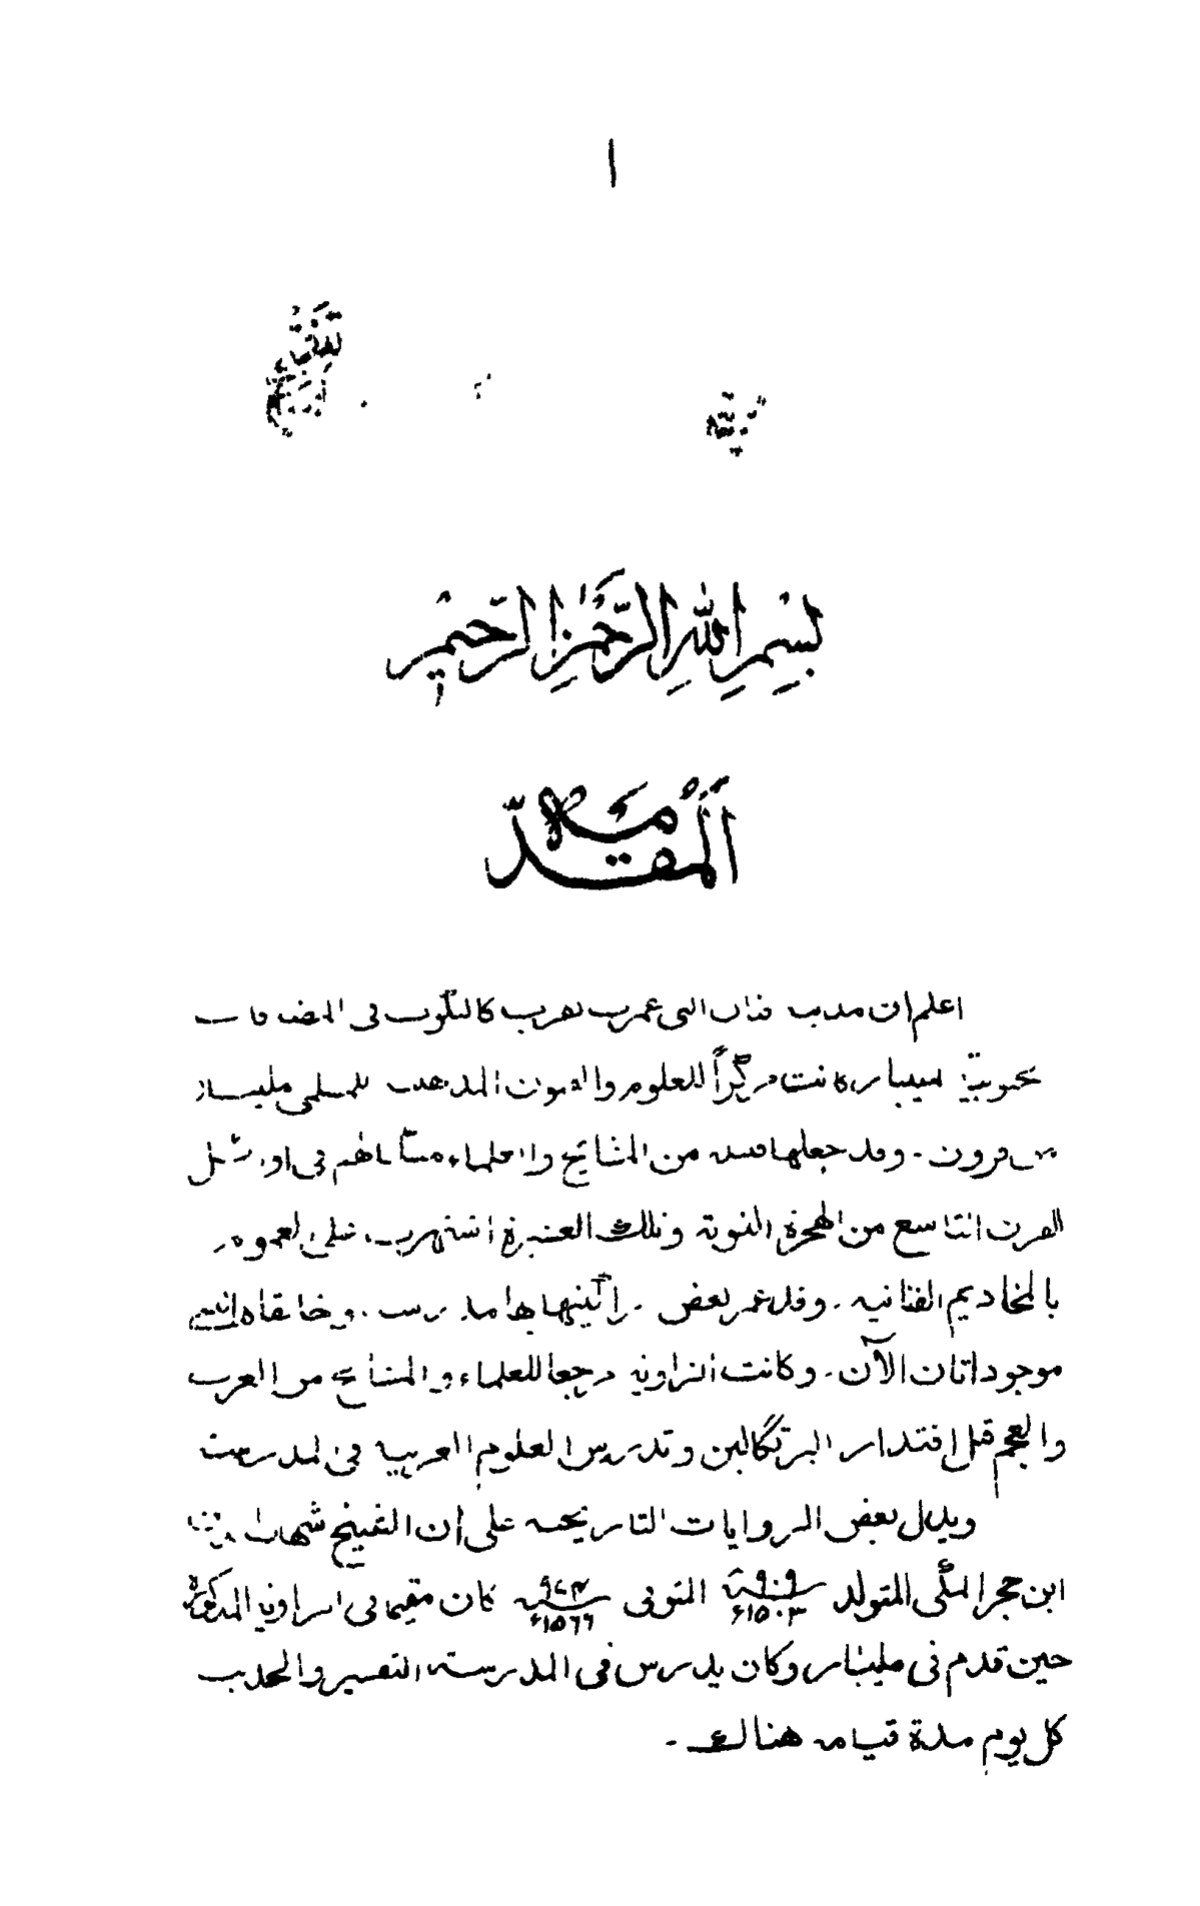 ١
بِسْمِ اللهِ الرَّحْمٰنِ الرَّحِيْمِ
اَلْمُقَدِّمَه
اعلم ان فنان التى كاليكوت فى
جنوبية مليبار كانت مركزاً للعلوم والفنون المذهبية للمسلمى مليبار
قرون ۔ وقد جعلها من المشايخ والعلماء فى اوائل
القرن التاسع من الهجرة النبوية وتلك العشيرة اشتهرت على العموم
بالمخاديم الفنانيه ۔ وقد عمر بعض بها مدرسة وخانقاه
موجودتان الآن ۔ وكانت الزاوية مرجعا للعلماء والمشايخ من العرب
والعجم قبل اقتدار البرتگاليين وتدريس العلوم العربية فى المدرسة
ويدل بعض الروايات التاريخية على ان الشيخ شهاب
ابن حجر المكى المتولد ٩٠٩ ١٥٠٣ء المتوفى ٩٧٤ ١٥٦٦ء كان مقيما فى الزاوية المذكورة
حين قدم فى مليبار وكان يدرس فى المدرسة التفسير والحديث
كل يوم مدة قيامه هنالك ۔